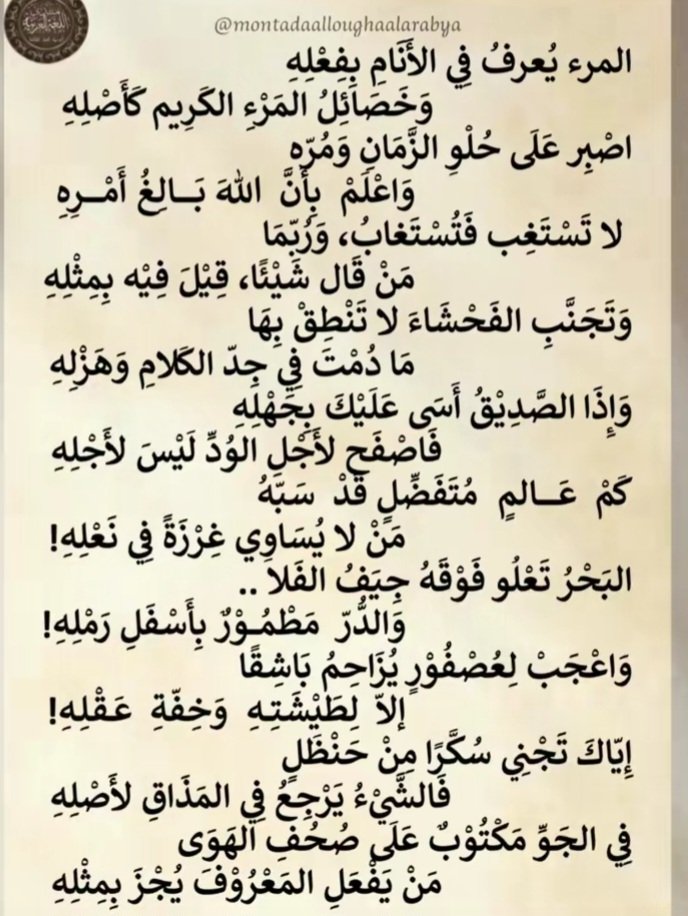 @montadaalloughaalarabya
المرء يُعرفُ فِي الأَنَامِ بِفِعْلِهِ
وَخَصَائِلُ المَرْءِ الكَرِيم كَأَصْلِهِ
اصْبِر عَلَى حُلْوِ الزَّمَانِ وَمُرّه
وَاعْلَمْ بِأنَّ اللهَ بَـالِغُ أَمْـرِهِ
لا تَسْتَغِب فَتُسْتَغابُ، وَرُبّمَا
مَنْ قَال شَيْئًا، قِيْلَ فِيْه بِمِثْلِهِ
وَتَجَنَّبِ الفَحْشَاءَ لا تَنْطِقْ بِهَا
مَا دُمْتَ فِي جِدّ الكَلامِ وَهَزْلِهِ
وَإِذَا الصَّدِيْقُ أَسَى عَلَيْكَ بِجَهْلِهِ
فَاصْفَح لأَجْلِ الوُدِّ لَيْسَ لأَجْلِهِ
كَمْ عَـالمٍ مُتَفَضِّلٍ قَدْ سَبّهُ
مَنْ لا يُسَاوِي غِرْزَةً فِي نَعْلِهِ!
البَحْرُ تَعْلُو فَوْقَهُ جِيَفُ الفَلا ..
وَالدُّرّ مَطْمُـوْرٌ بِأَسْفَلِ رَمْلِهِ!
وَاعْجَبْ لِعُصْفُوْرٍ يُزَاحِمُ بَاشِقًا
إلاّ لِطَيْشَتِـهِ وَخِفّةِ عَـقْلِهِ!
إِيّاكَ تَجْنِي سُكَّرًا مِنْ حَنْظَلٍ
فَالشَّيْءُ يَرْجِعُ فِي المَذَاقِ لأَصْلِهِ
فِي الجَوِّ مَكْتُوْبٌ عَلَى صُحُفِ الهَوَى
مَنْ يَفْعَلِ المَعْرُوْفَ يُجْزَ بِمِثْلِهِ